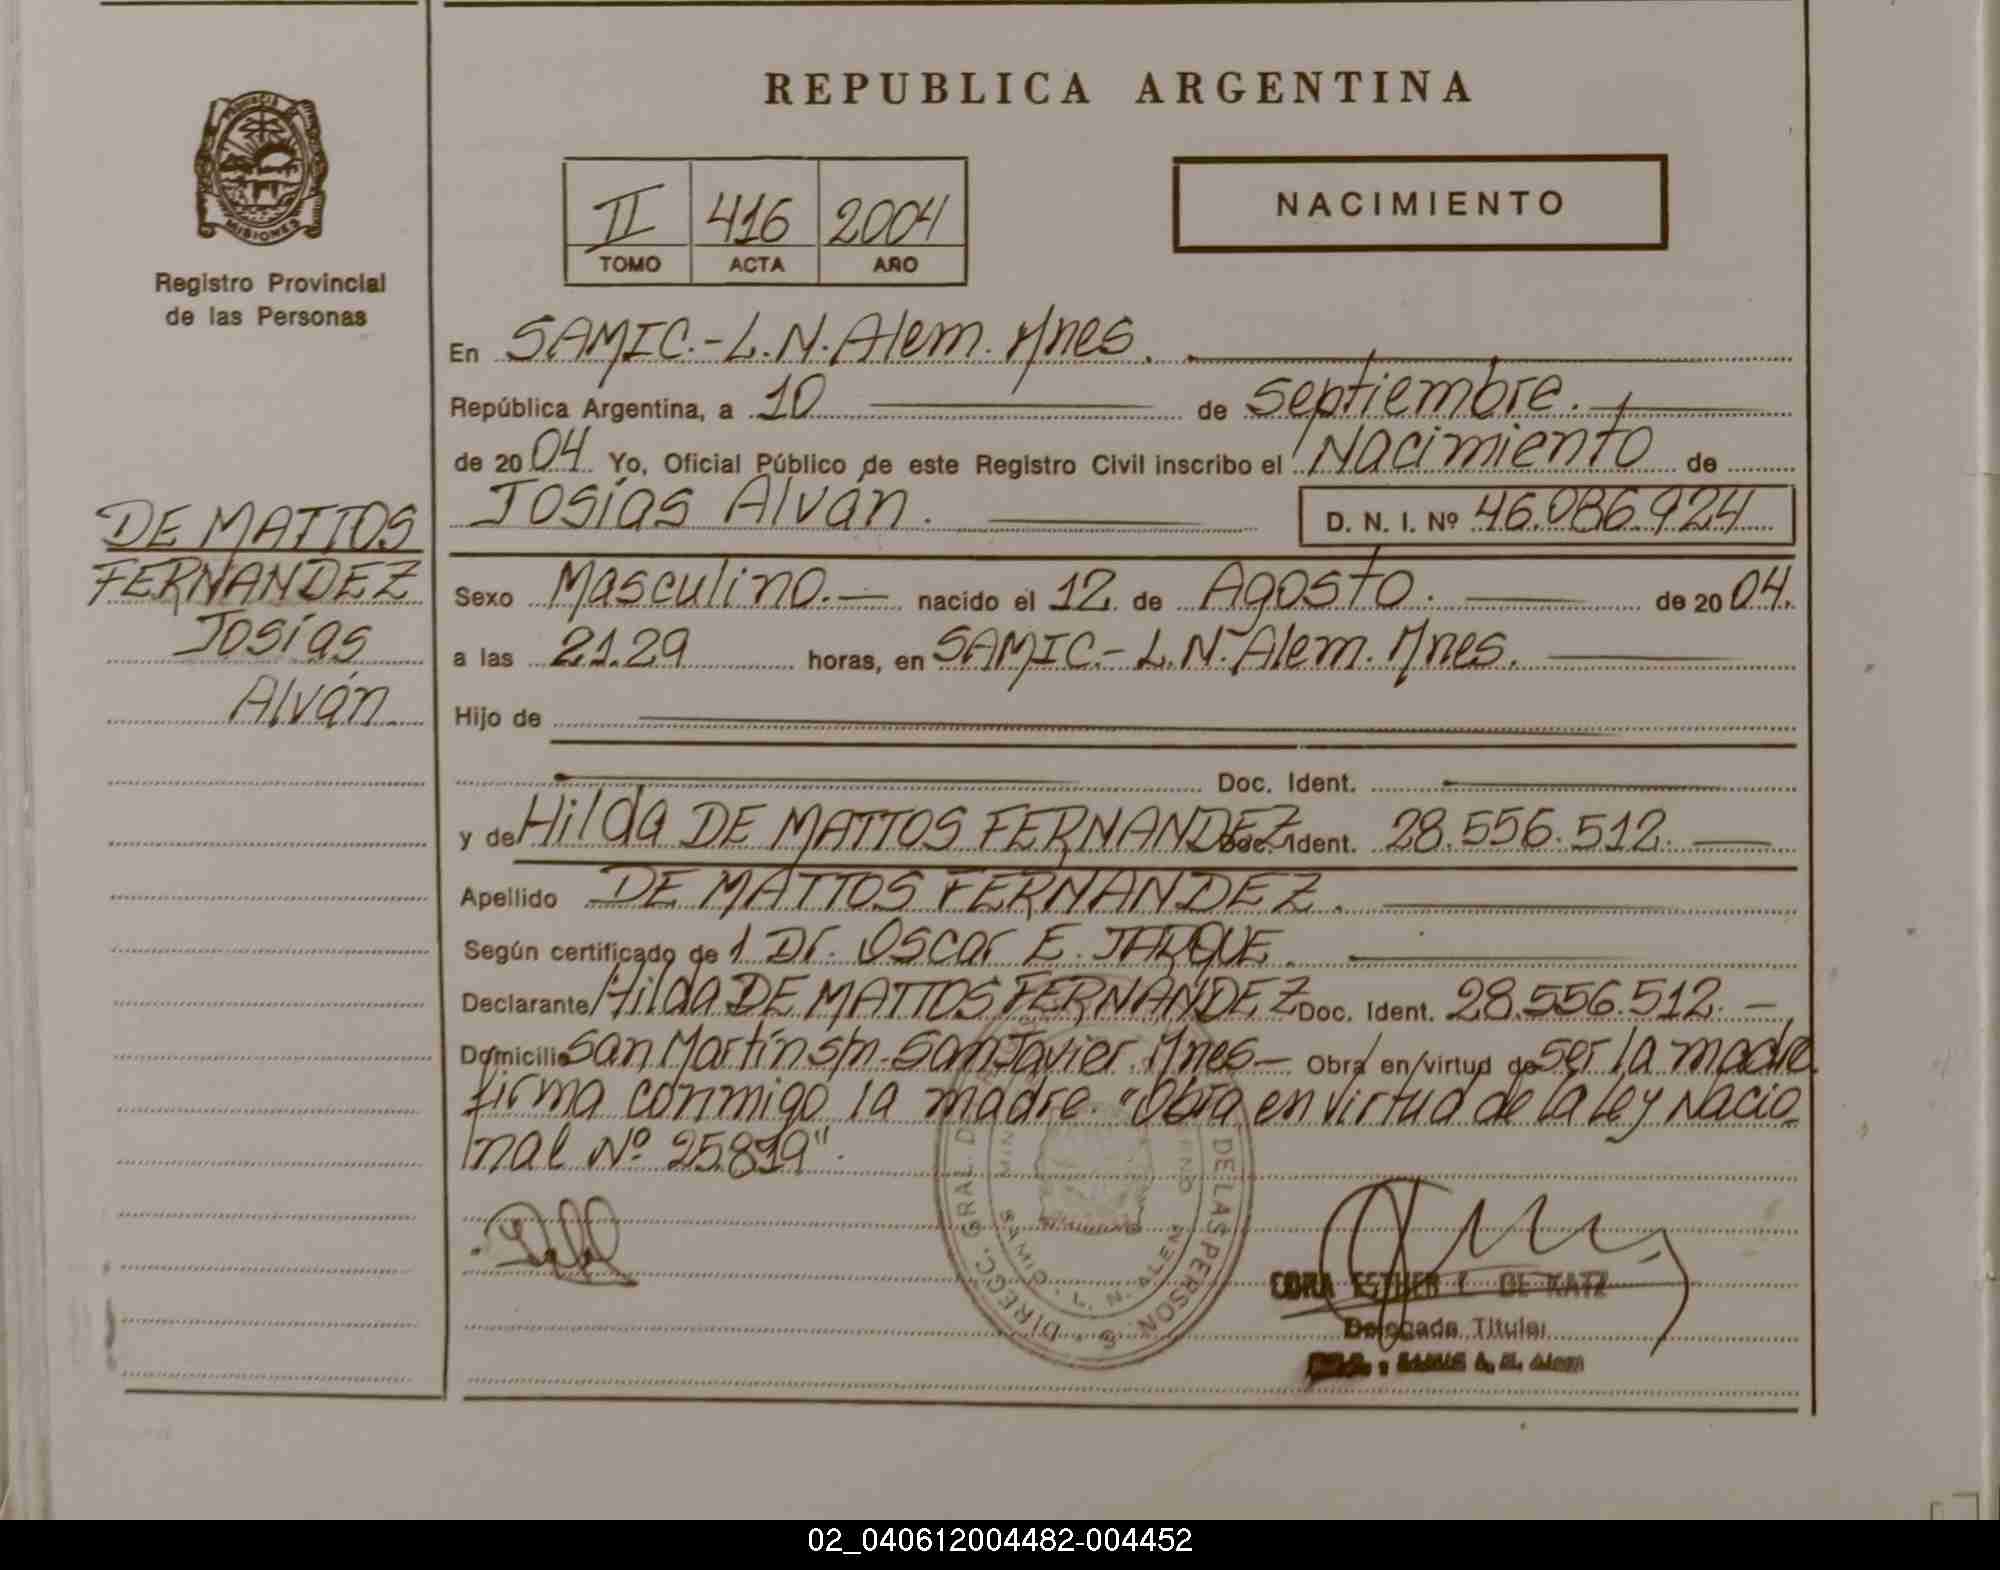 REPUBLICA ARGENTINA
PROVINCIA
MISIONES
Registro Provincial
de las Personas
II 416 2004
TOMO ACTA AÑO
NACIMIENTO
En SAMIC.-L.N.Alem. Mnes.
República Argentina, a 10 de septiembre.
de 2004 Yo, Oficial Público de este Registro Civil inscribo el Nacimiento de
Josías Alván. D. N. I. Nº 46.086.924
DE MATTOS
FERNANDEZ
Josías
Alván
Sexo Masculino.- nacido el 12 de Agosto. de 2004.
a las 21.29 horas, en SAMIC.-L.N.Alem. Mnes.
Hijo de
Doc. Ident.
y de Hilda DE MATTOS FERNANDEZ Doc. Ident. 28.556.512.
Apellido DE MATTOS FERNANDEZ.
Según certificado de 1 Dr. Oscar E. JARQUE.
Declarante Hilda DE MATTOS FERNANDEZ Doc. Ident. 28.556.512.-
Domicilio San Martín s/n. San Javier. Mnes- Obra en virtud de ser la madre
firma conmigo la madre. "Obra en virtud de la Ley Nacio
nal Nº 25.819".
DIRECC. GRAL. DE LAS PERSONAS
SAMIC. L. N. ALEM
CORA ESTHER L. DE KATZ
Delegada Titular
SAMIC L. N. Alem
02_040612004482-004452